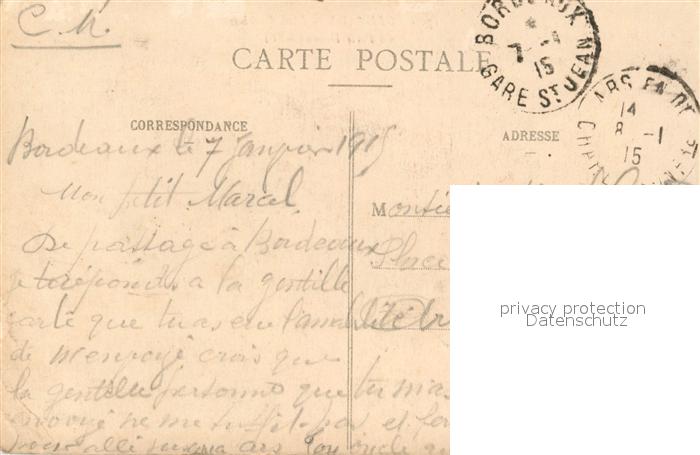 C. M.
CARTE POSTALE
BORDEAUX
7 -1
15
GARE ST JEAN
ARS EN RE
14
8 -1
15
CORRESPONDANCE
ADRESSE
Bordeaux le 7 Janvier 1915
Mon petit Marcel
De passage à Bordeaux
je réponds a la gentille
carte que tu as eu l'amabilité
de m'envoyé crois que
la gentille personne que tu m'as
envoyé ne me suffit pas et
Monsie
Place
privacy protection
Datenschutz